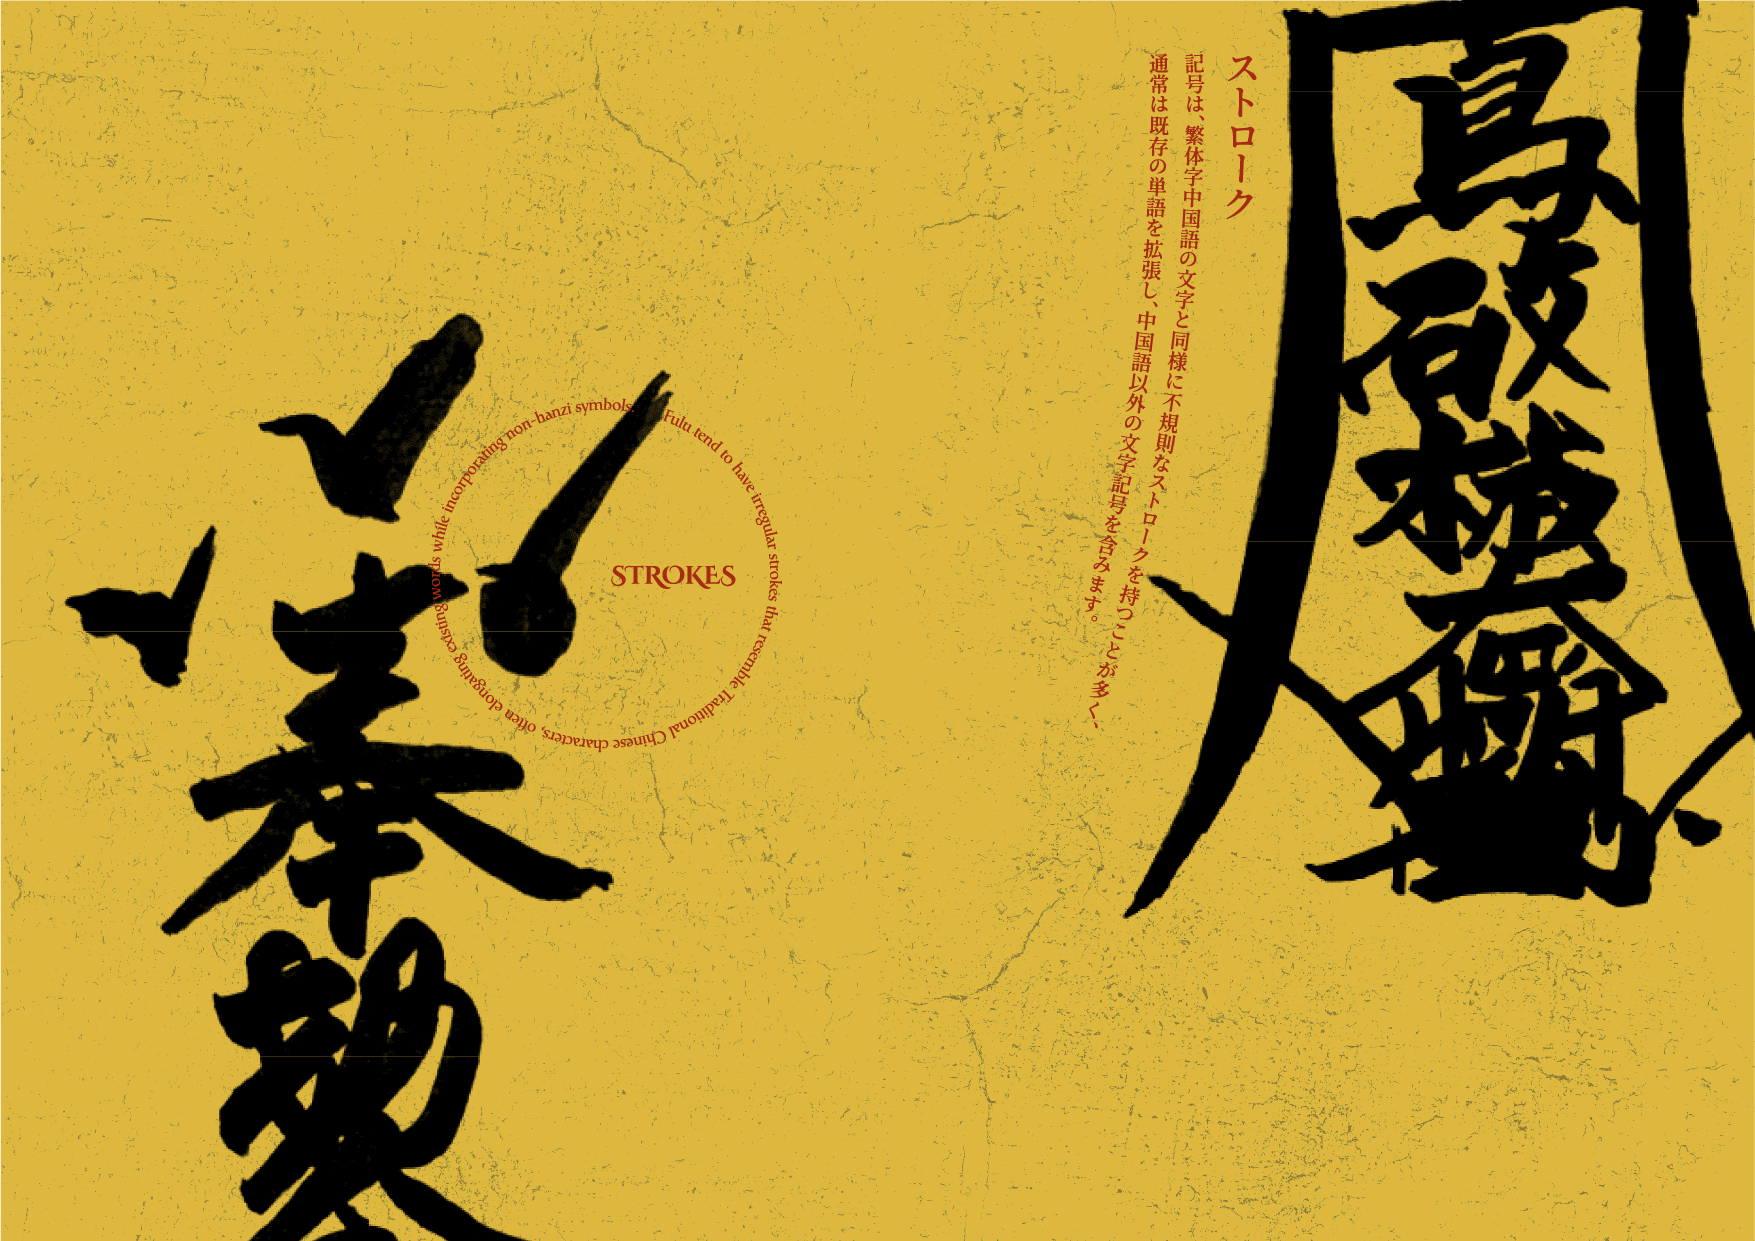 STROKES
Fulu tend to have irregular strokes that resemble Traditional Chinese characters, often elongating existing words while incorporating non-hanzi symbols.
ストローク
記号は、繁体字中国語の文字と同様に不規則なストロークを持つことが多く、
通常は既存の単語を拡張し、中国語以外の文字記号を含みます。
奉
勅